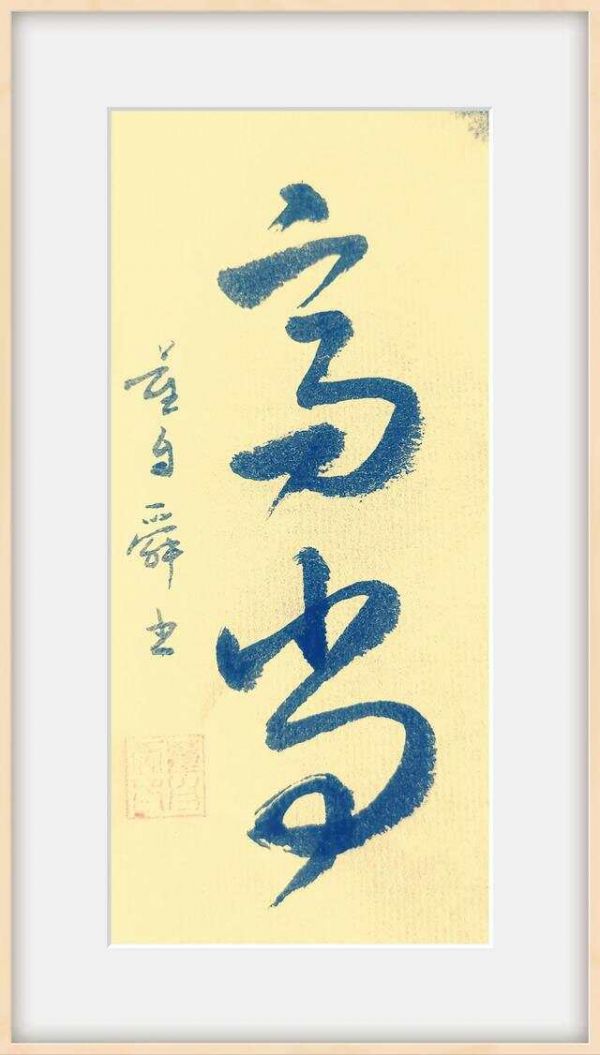 高尚
董自舜书